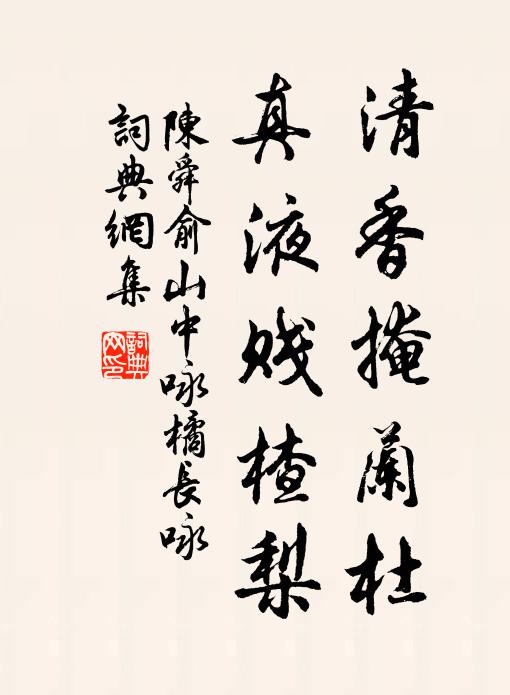 清香掩蘭杜
真液賤楂梨
陳舜俞山中咏橘長咏
詞典網集
詞典网印